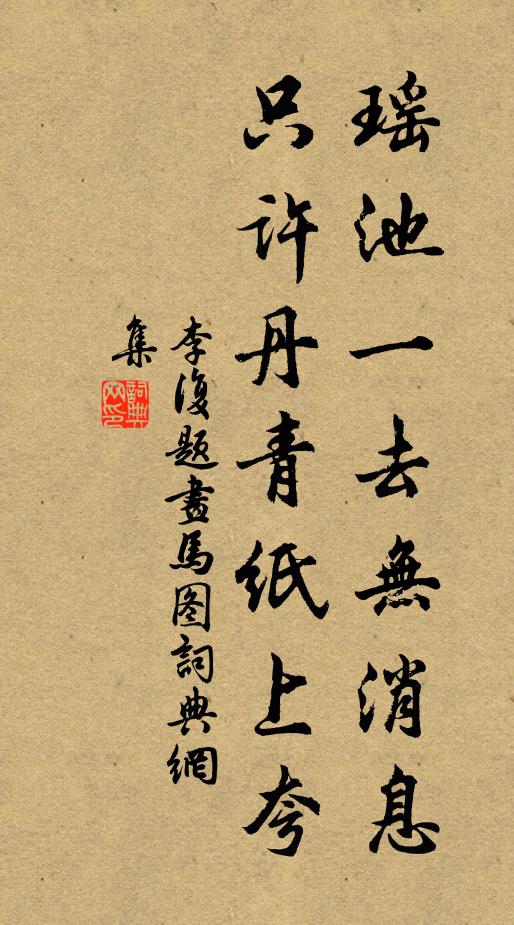 瑶池一去無消息
只許丹青紙上夸
李復題畫馬图詞典網
集
詞典网印